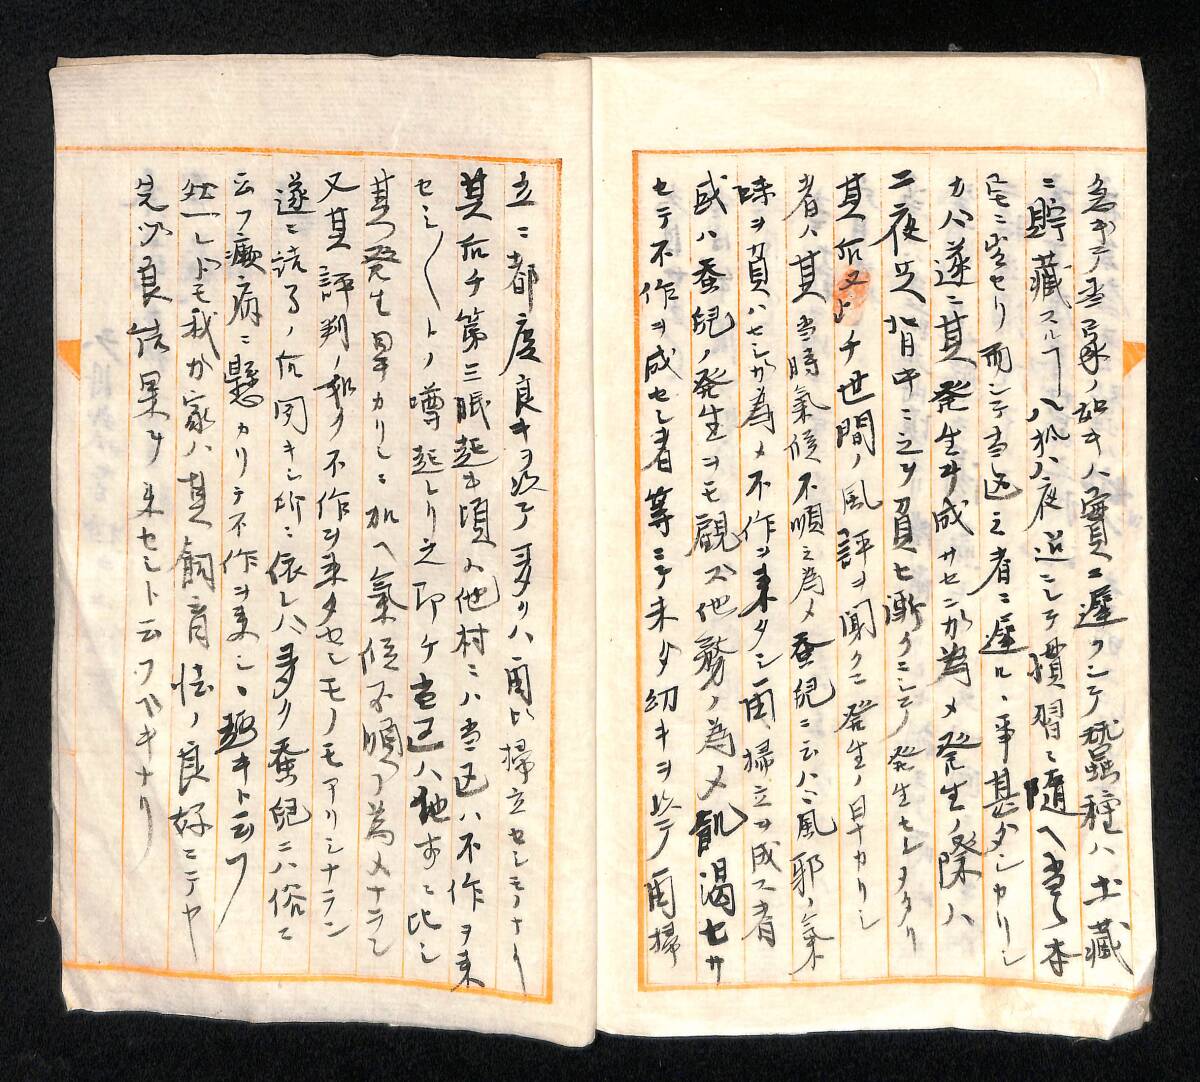 急キテ吾家ノ如キハ實ニ遲クシテ蚕種ハ土藏
ニ貯藏スルヿ八九ハ夜近ニシテ慣習ニ隨ヘ當本
モニ出セリ而シテ當區之者ニ遲ルヽ事甚タシカリシ
カハ遂ニ其発生ヲ成サセンカ為メ発生ノ際ハ
二夜共背中ニ之ヲ負ヒ漸クニシテ発生セシメタリ
其后又止チ世間ノ風評ヲ聞クニ発生ノ早カリシ
者ハ其当時氣候不順之為メ蚕兒ニ云ハヽ風邪ノ氣
味ヲ負ハセシカ為メ不作ヲ来タシ用掃立ヲ成ス者
或ハ蚕兒ノ発生ヲモ顧ズ他務ノ為メ飢渇セサ
セテ不作ヲ成セシ者等ニテ未タ幼キヲ以テ用掃
立ニ都度良キヲ以テ多クハ用ヒ掃立セシモノナリ
其后チ第三眠起キ頃ハ他村ニハ当区ハ不作ヲ来
セシ〱トノ噂起レリ之即ケ当区ハ他村ニ比シ
其発生早カリシニ加ヘ氣候不順ノ為メナラン
又其評判ノ如ク不作ヲ来タセシモノモアリシナラン
遂ニ詰ルノ處聞キシ所ニ依レハ多ク蚕兒ニハ俗ニ
云フ癩病ニ懸カリテ不作ヲ来シヽ趣キト云フ
然レドモ我カ家ハ其飼育法ノ良好ニテヤ
先必良結果ヲ来セシト云フベキナリ